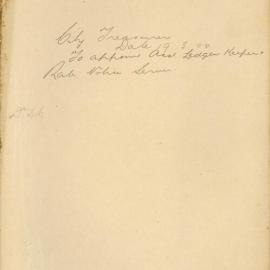 City Treasurer
Date 19.3.00
To appoint Asst Ledger Keeper
Rate Notice Server